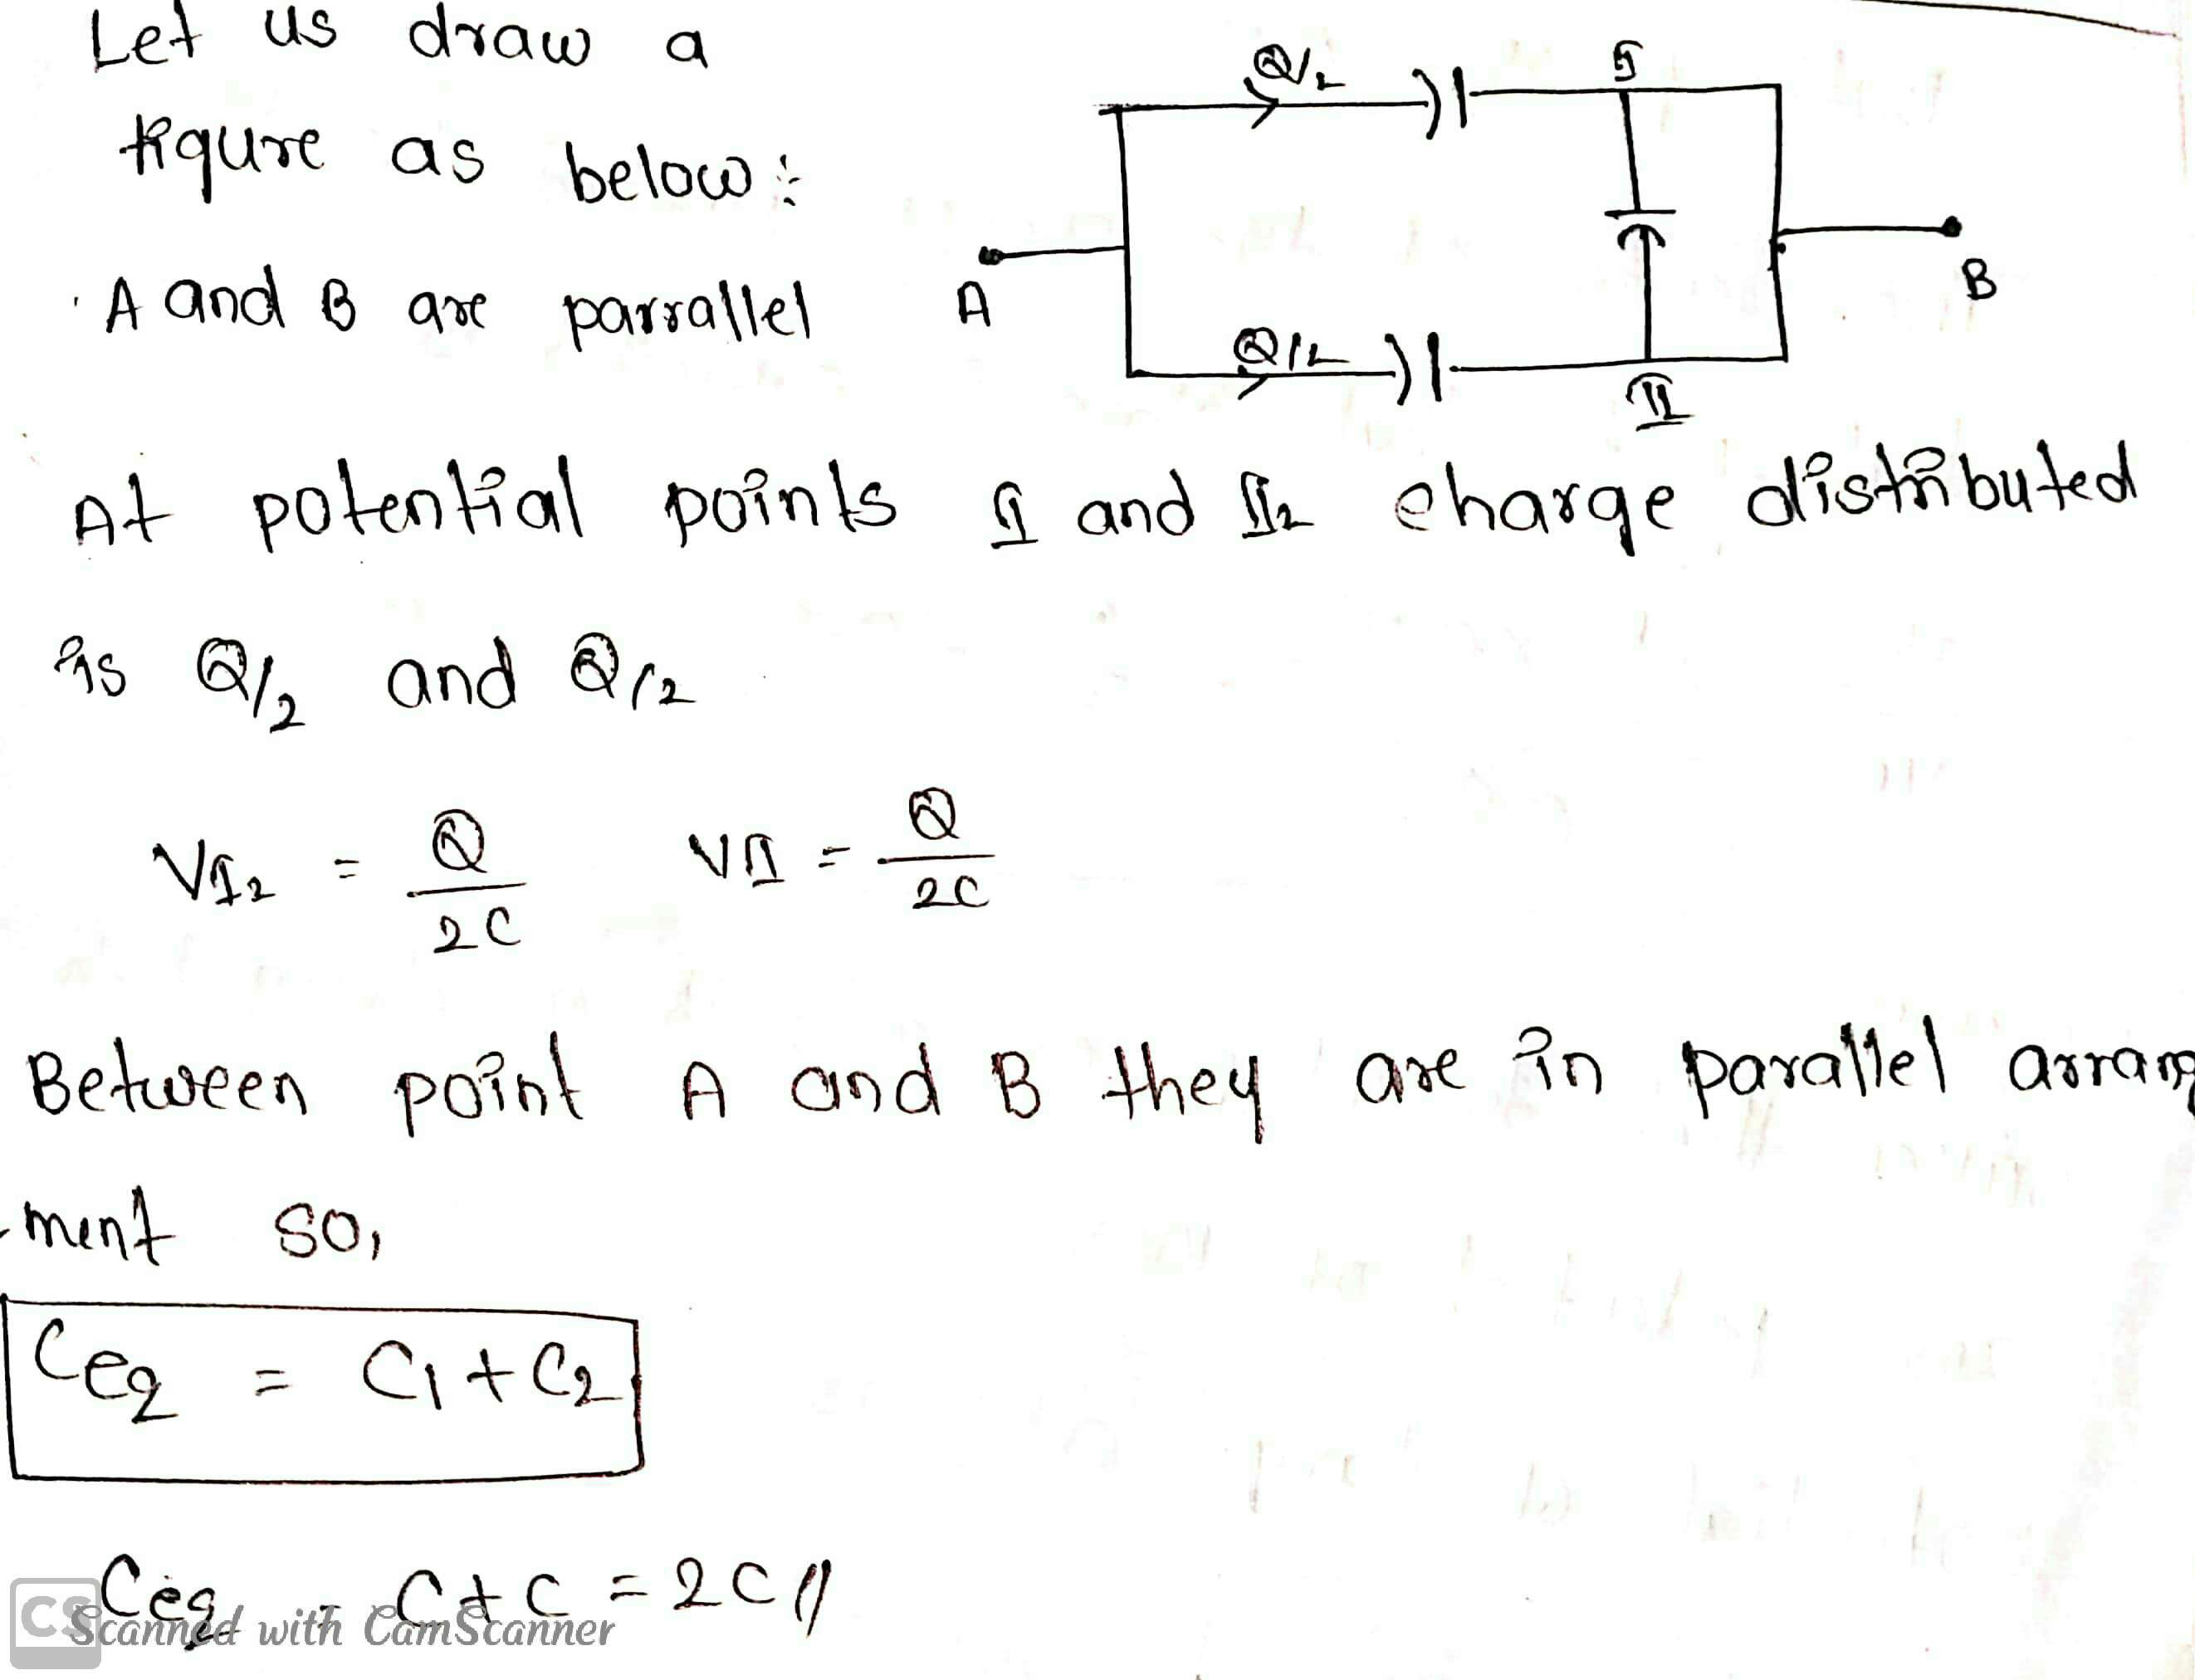 Let us draw a
figure as below:
A and B are parrallel
Q/2
I
A
B
Q/2
II
At potential points I and I2 charge distributed
is Q/2 and Q/2
VI2 = Q/2C VI = Q/2C
Between point A and B they are in parallel arrang
-ment so,
Ceq = C1 + C2
Ceq = C + C = 2C //
CS Scanned with CamScanner